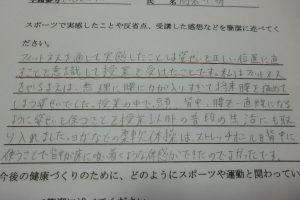 氏 名
スポーツで実感したことや反省点、受講した感想などを簡潔に述べてく
ださい。
フィットネスを通して実感したことは姿勢を正しい位置に直
すことを意識して授業を受けたことです。私はフィットネス
をやるまえは、無理に腰に力が入りすぎて将来腰を痛めて
しまう姿勢でした。授業の中で、頭、背中、腰を一直線にな
るように姿勢を保つことを授業以外の普段の生活にも取
り入れました。ヨガなどの柔軟体操はストレッチポールを背中に
使うことで背中が床に着くような体感ができたのでよかったです。
今後の健康づくりのために、どのようにスポーツや運動と関わってい